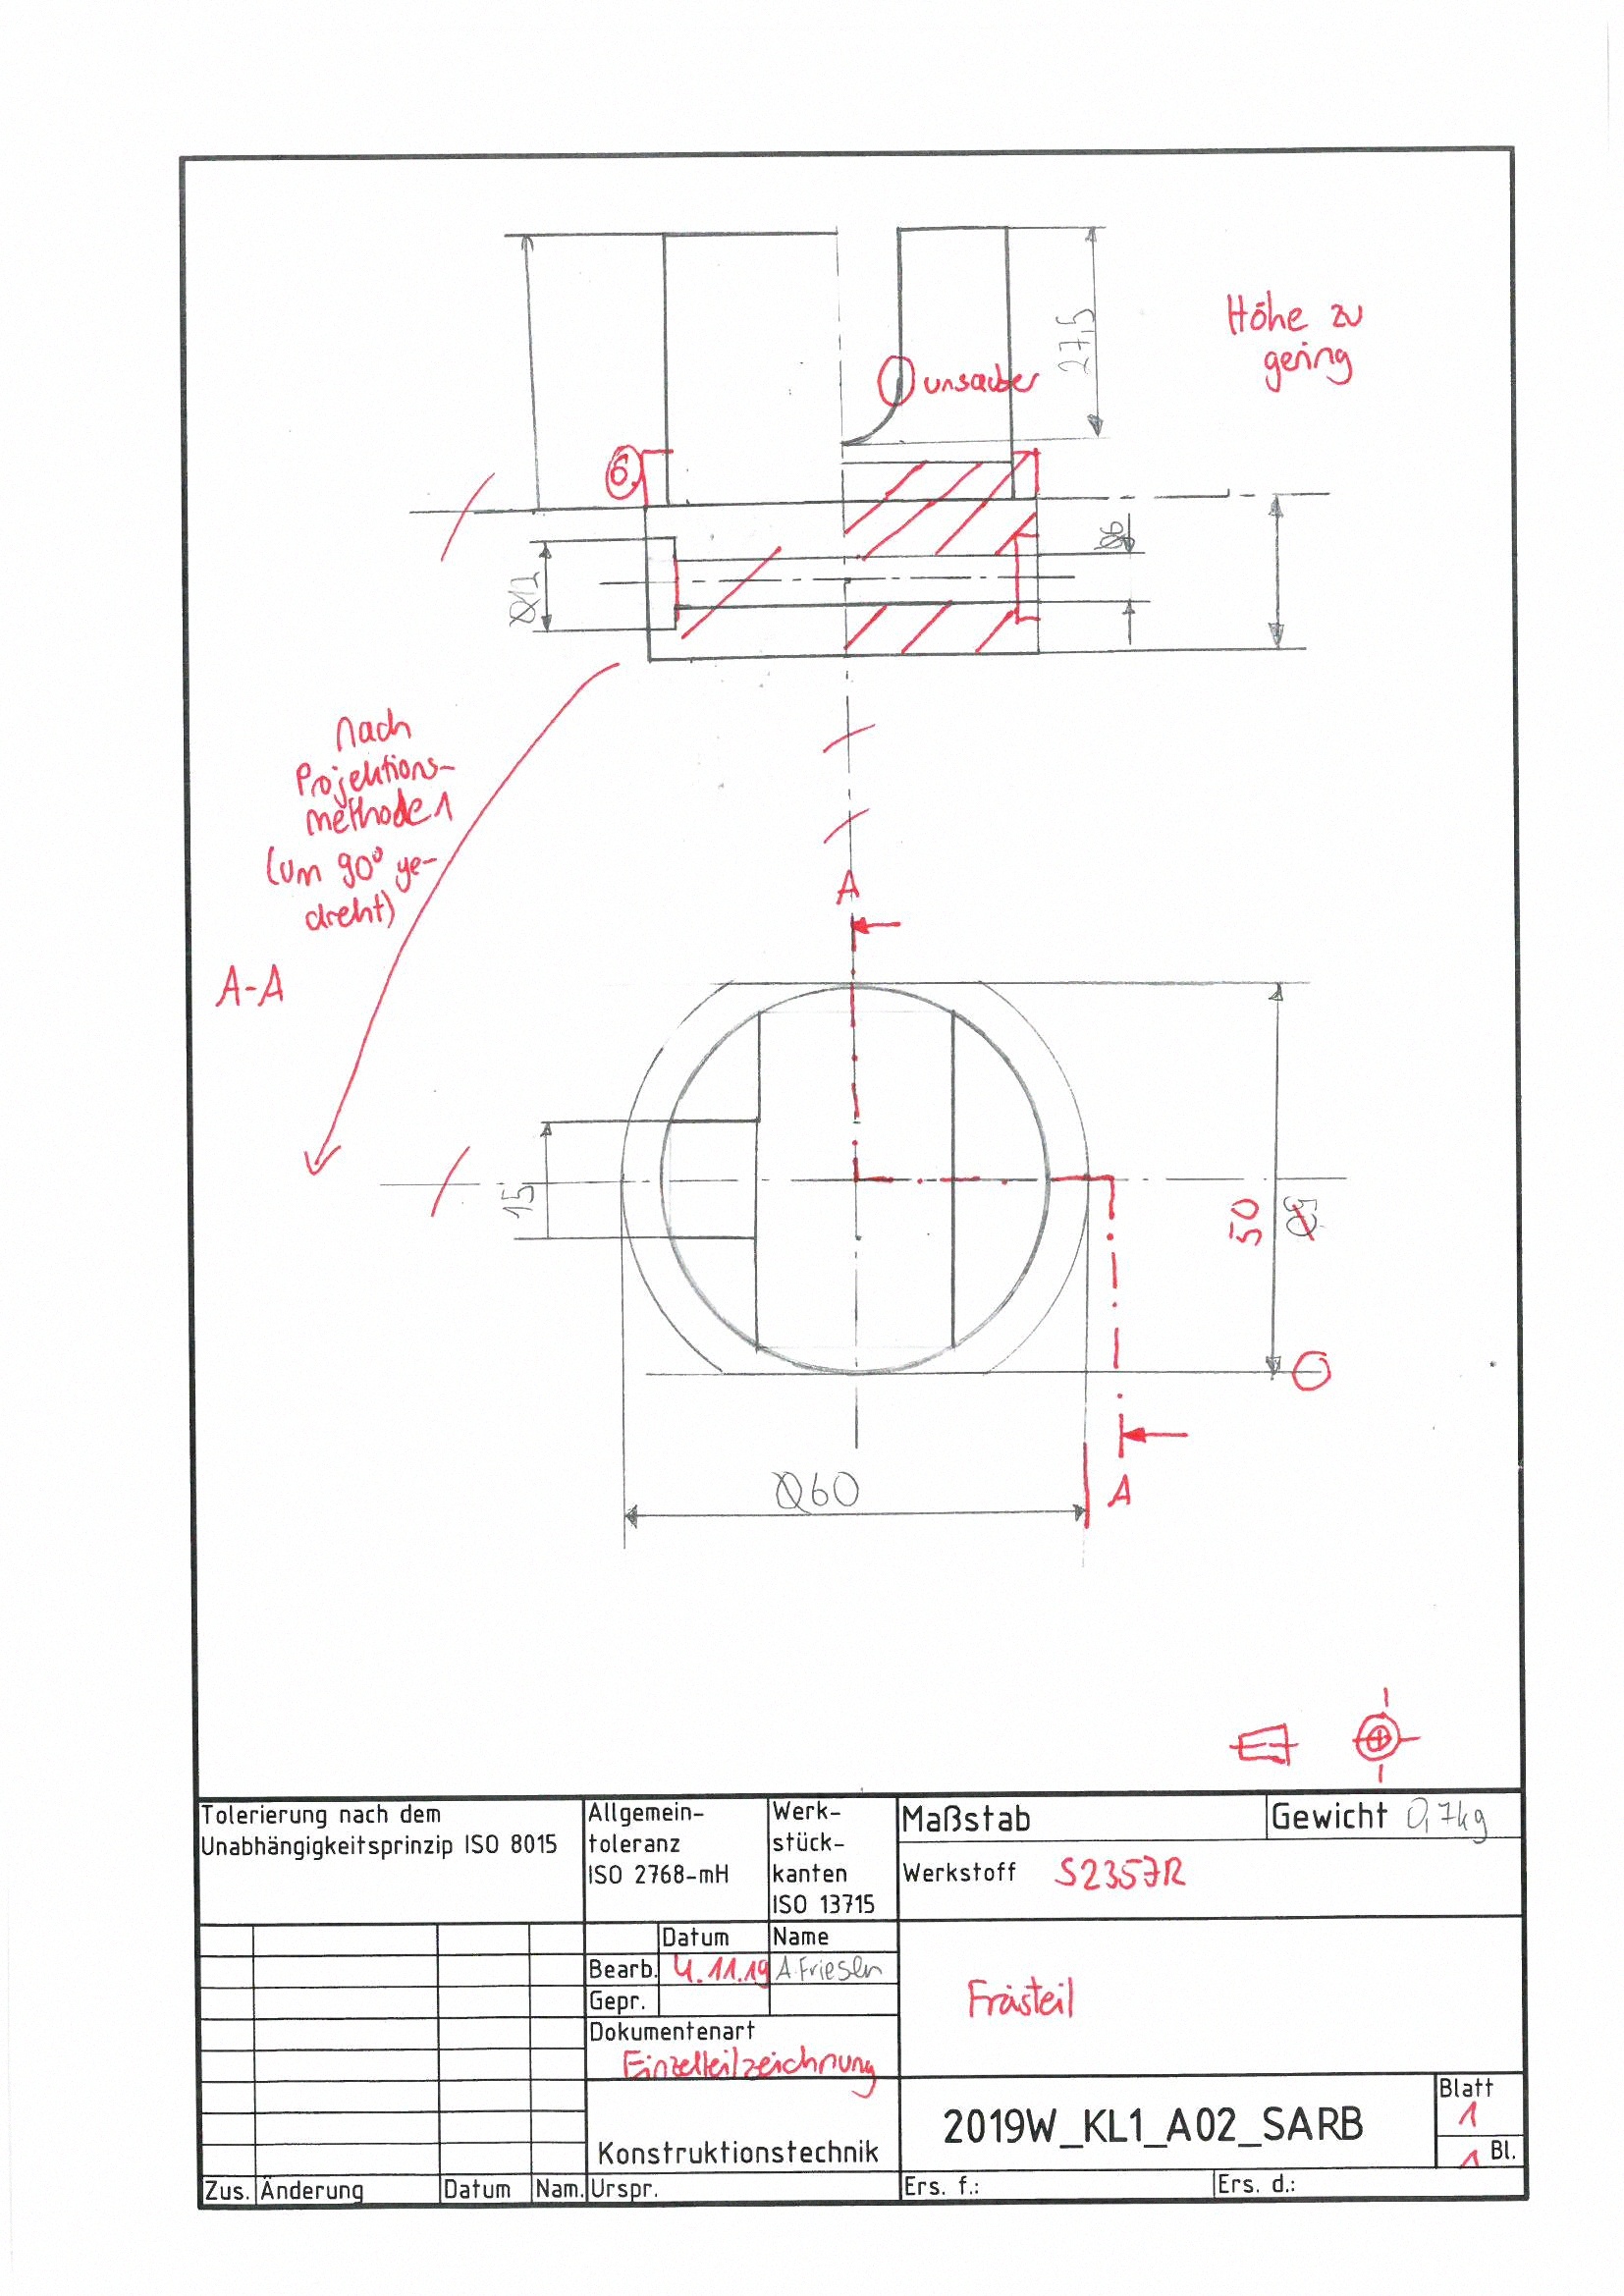 Höhe zu
gering
27,5
unsauber
6
Ø6
Ø12
nach
Projektions-
methode 1
(um 90° ge-
dreht)
A
A-A
15
50
Ø60
A
Tolerierung nach dem
Unabhängigkeitsprinzip ISO 8015
Allgemein-
toleranz
ISO 2768-mH
Werk-
stück-
kanten
ISO 13715
Maßstab
Gewicht 0,7kg
Werkstoff S235JR
Datum
Name
Bearb. 4.11.19 A.Friesen
Gepr.
Frästeil
Dokumentenart
Einzelteilzeichnung
Konstruktionstechnik
2019W_KL1_A02_SARB
Blatt
1
1 Bl.
Zus. Änderung Datum Nam. Urspr. Ers. f.: Ers. d.: